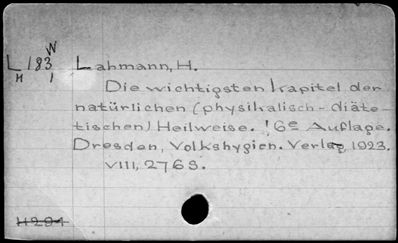 W
L 183 Lahmann, H.
H 1
Die wichtigsten Kapitel der
natürlichen (physikalisch-diäte-
tischen) Heilweise. !6e Auflage.
Dresden, Volkshygien. Verlag, 1923.
VIII, 276 S.
H 294